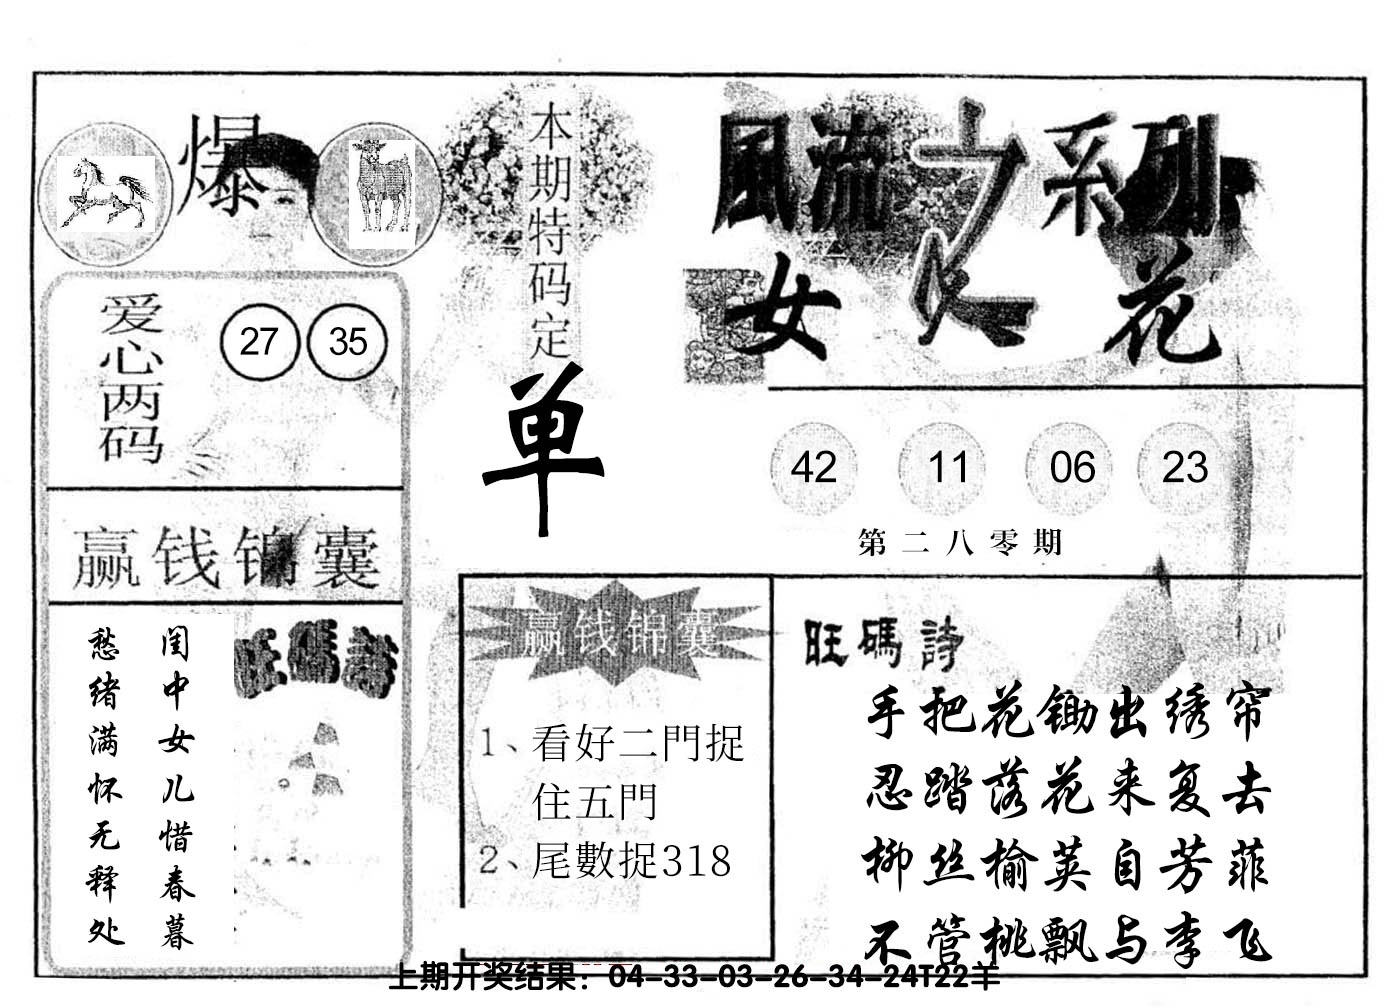 爆
本期特码定
单
風流之系列
女人花
爱心两码
27 35
42 11 06 23
第二八零期
赢钱锦囊
闺中女儿惜春暮
愁绪满怀无释处
旺碼詩
赢钱锦囊
1、看好二門捉
住五門
2、尾數捉318
旺碼詩
手把花锄出绣帘
忍踏落花来复去
柳丝榆荚自芳菲
不管桃飘与李飞
上期开奖结果：04-33-03-26-34-24T22羊